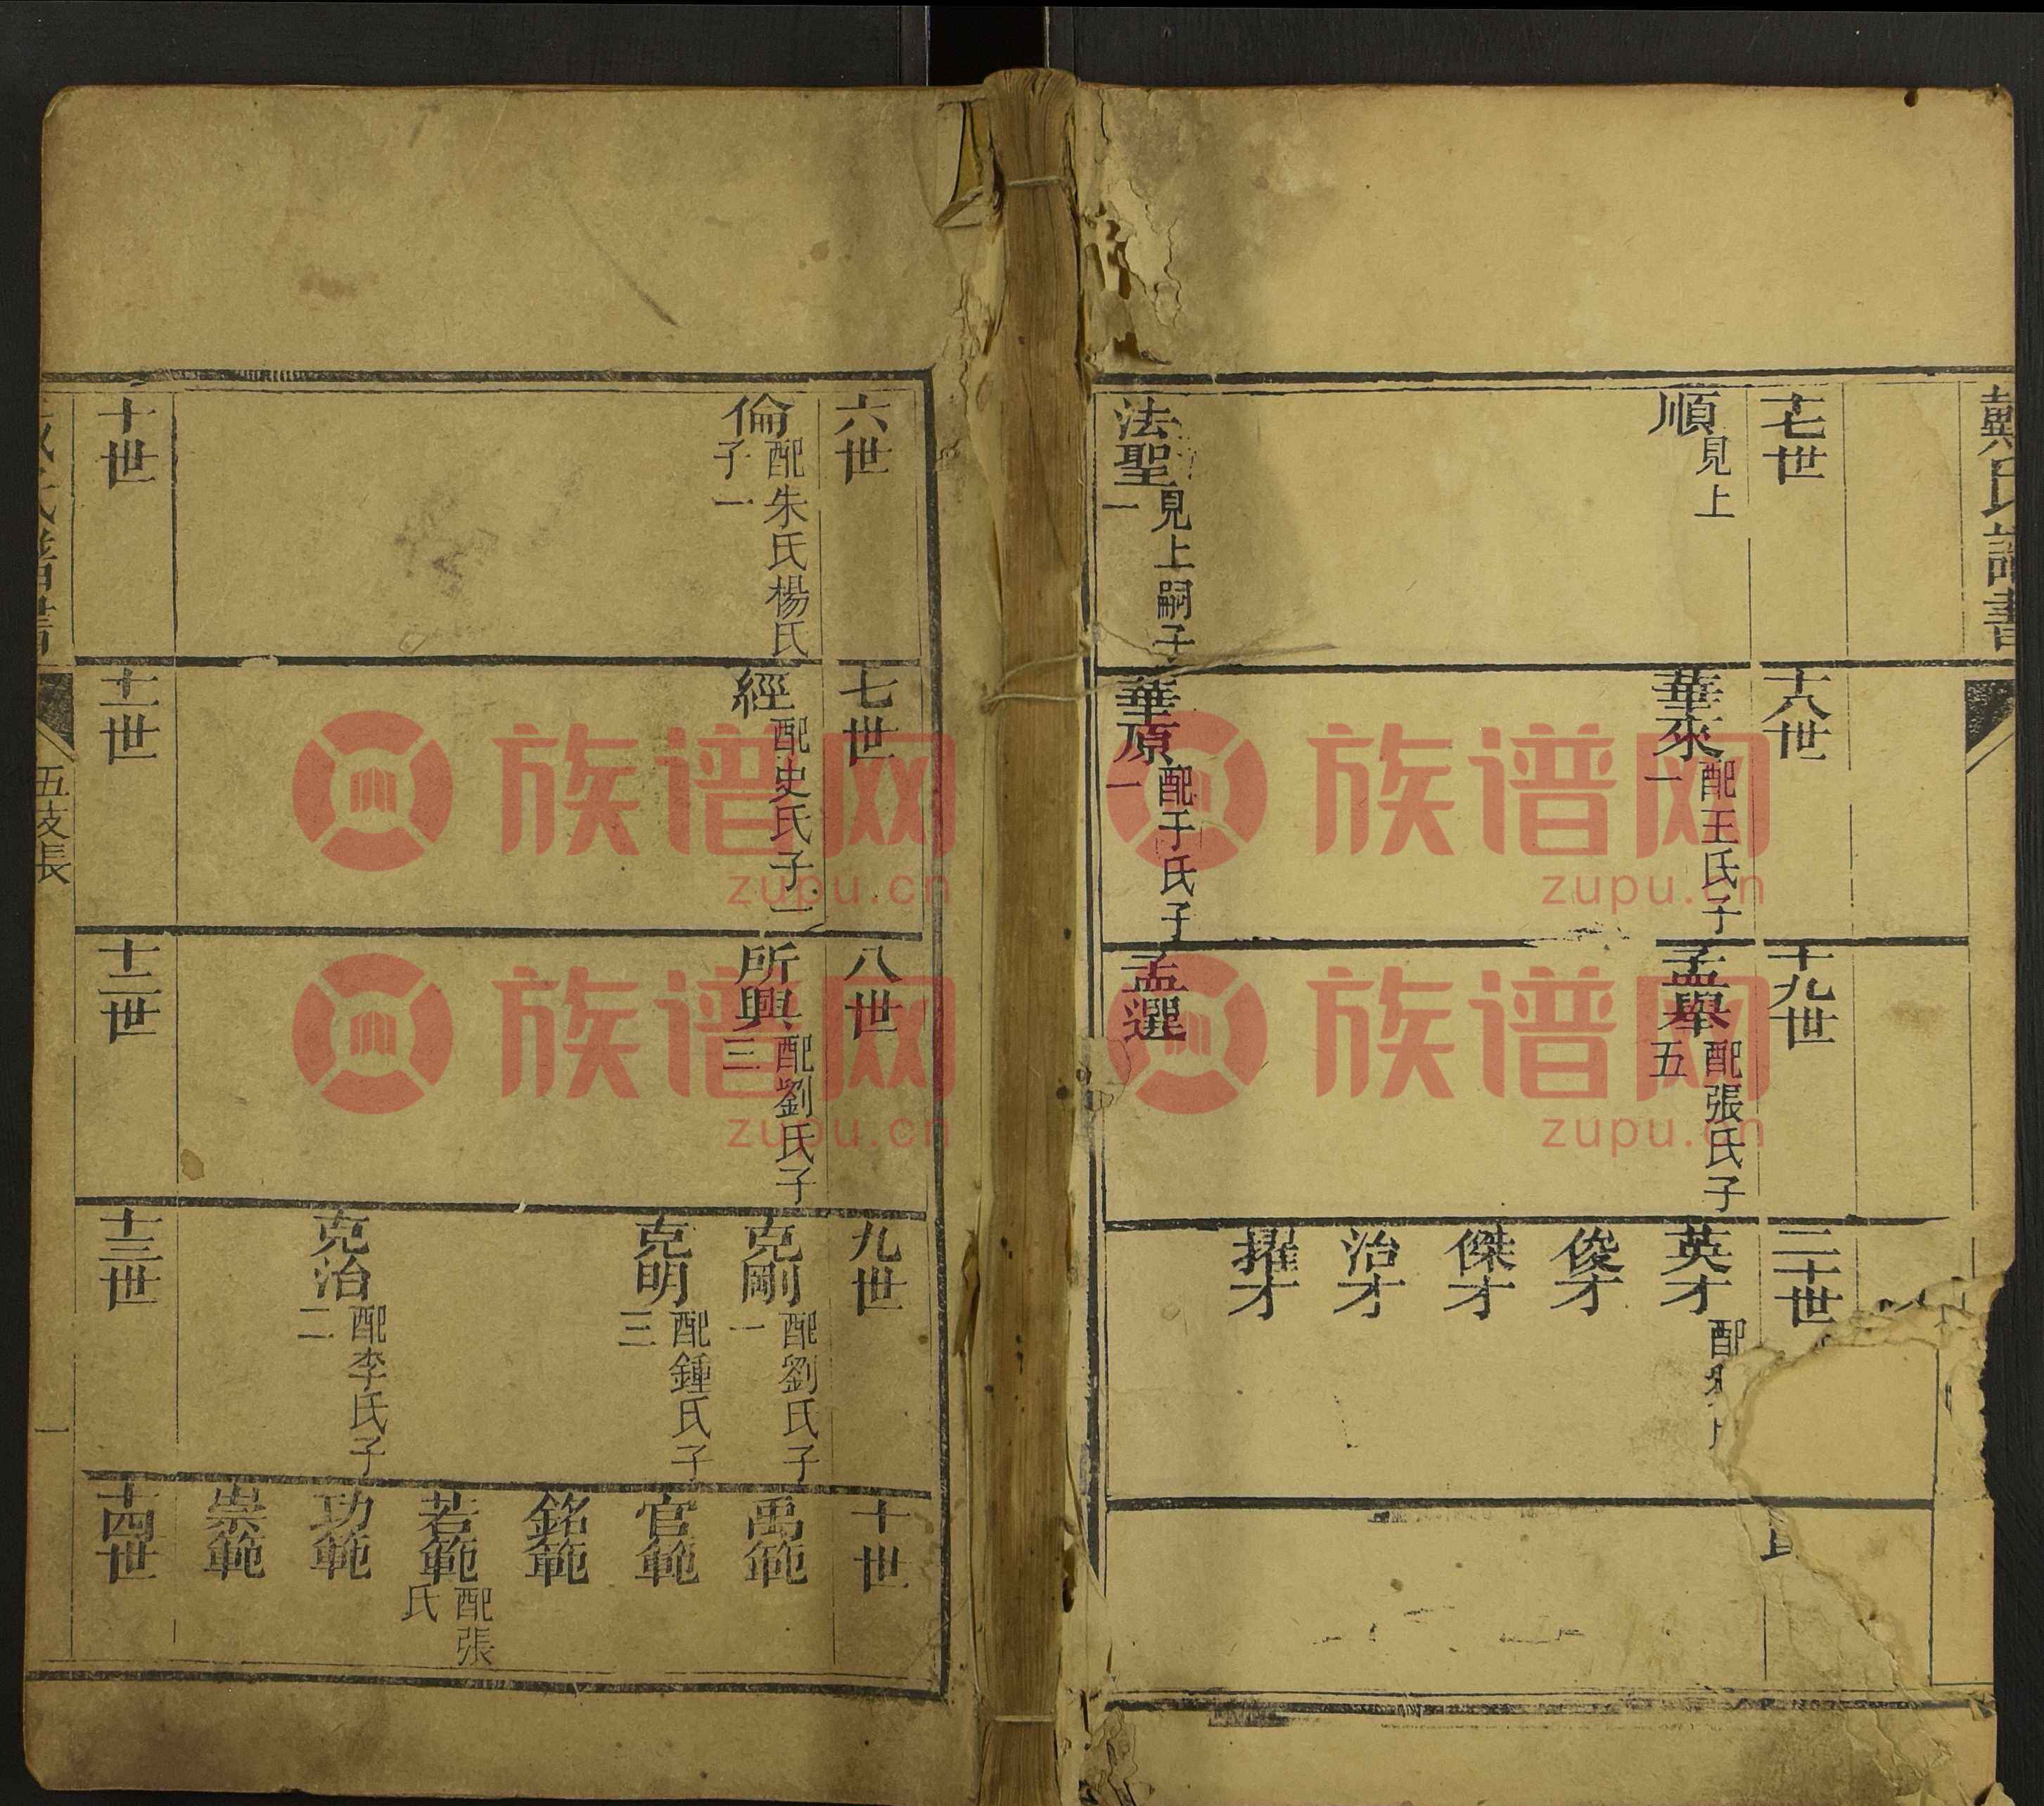 戴氏譜書
十七世
順 見上
法聖 見上嗣子一
十八世
華來 配王氏子一
華原 配于氏子一
十九世
孟舉 配張氏子五
孟選
二十世
英才 配
俊才
傑才
治才
擢才
六世
倫 配朱氏楊氏子一
七世
經 配史氏子一
八世
所興 配劉氏子三
九世
克剛 配劉氏子一
克明 配鍾氏子三
克治 配李氏子二
十世
禹範
官範
銘範
若範 配張氏
功範
崇範
十世
十一世
十二世
十三世
十四世
氏譜書
五支長
一
族谱网
zupu.cn
族谱网
zupu.cn
族谱网
zupu.cn
族谱网
zupu.cn